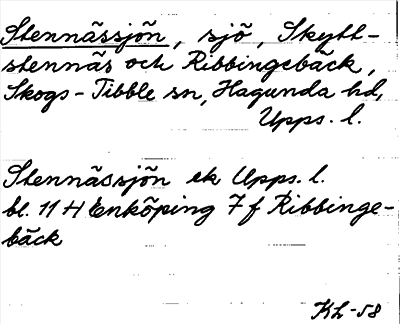 Stennässjön, sjö, Skytt-
stennäs och Ribbingebäck,
Skogs-Tibble sn, Hagunda hd,
Upps. l.
Stennässjön ek Upps. l.
bl. 11 H Enköping 7 f Ribbinge-
bäck
KL-58